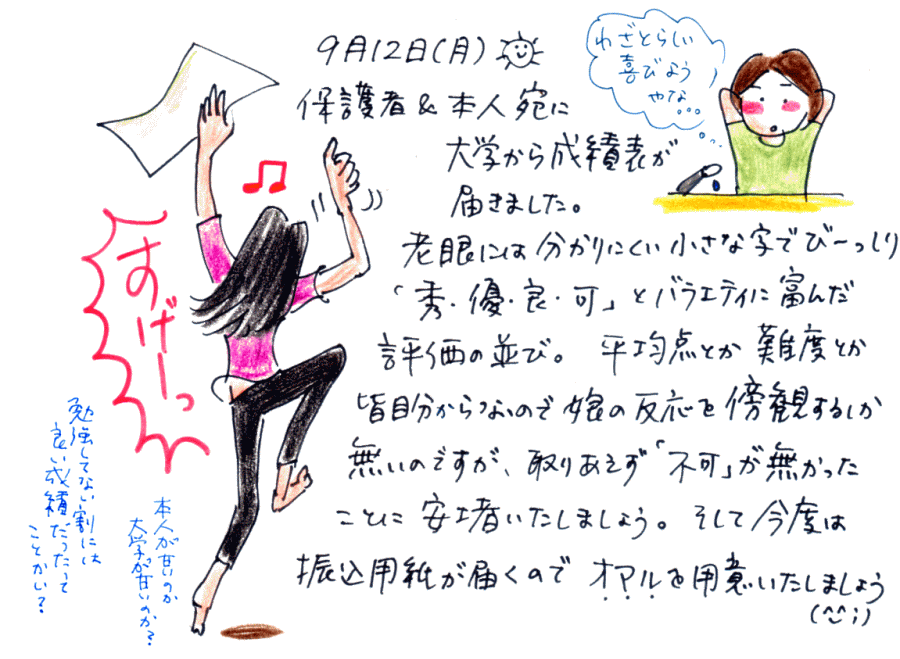 9月12日(月)
保護者&本人宛に
大学から成績表が
届きました。
老眼には分かりにくい小さな字でび〜っしり
「秀・優・良・可」とバラエティに富んだ
評価の並び。平均点とか難度とか
皆目分からないので娘の反応を傍観するしか
無いのですが、取りあえず「不可」が無かった
ことに安堵いたしましょう。そして今度は
振込用紙が届くので オアルを用意いたしましょう
(^^;)
わざとらしい
喜びよう
やな...
すげーっ
勉強してない割には
良い成績だったって
ことかい?
本人が甘いのか
大学が甘いのか?